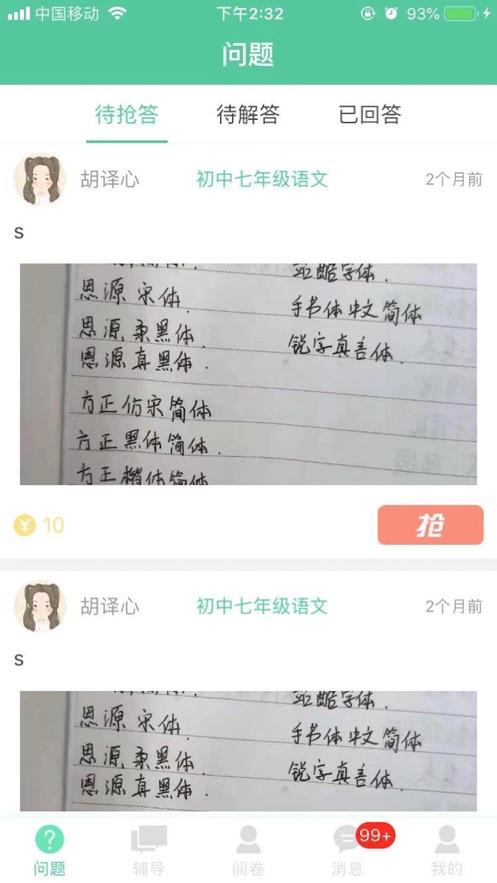 中国移动 下午2:32 93%
问题
待抢答 待解答 已回答
胡译心 初中七年级语文 2个月前
s
站酷字体.
思源 宋体. 手书体中文简体
思源 柔黑体. 锐字真言体.
思源 真黑体.
方正仿宋简体
方正黑体简体.
方正楷体简体
10 抢
胡译心 初中七年级语文 2个月前
s
站酷字体.
思源 宋体. 手书体中文简体
思源 柔黑体. 锐字真言体.
思源 真黑体.
99+
问题 辅导 阅卷 消息 我的